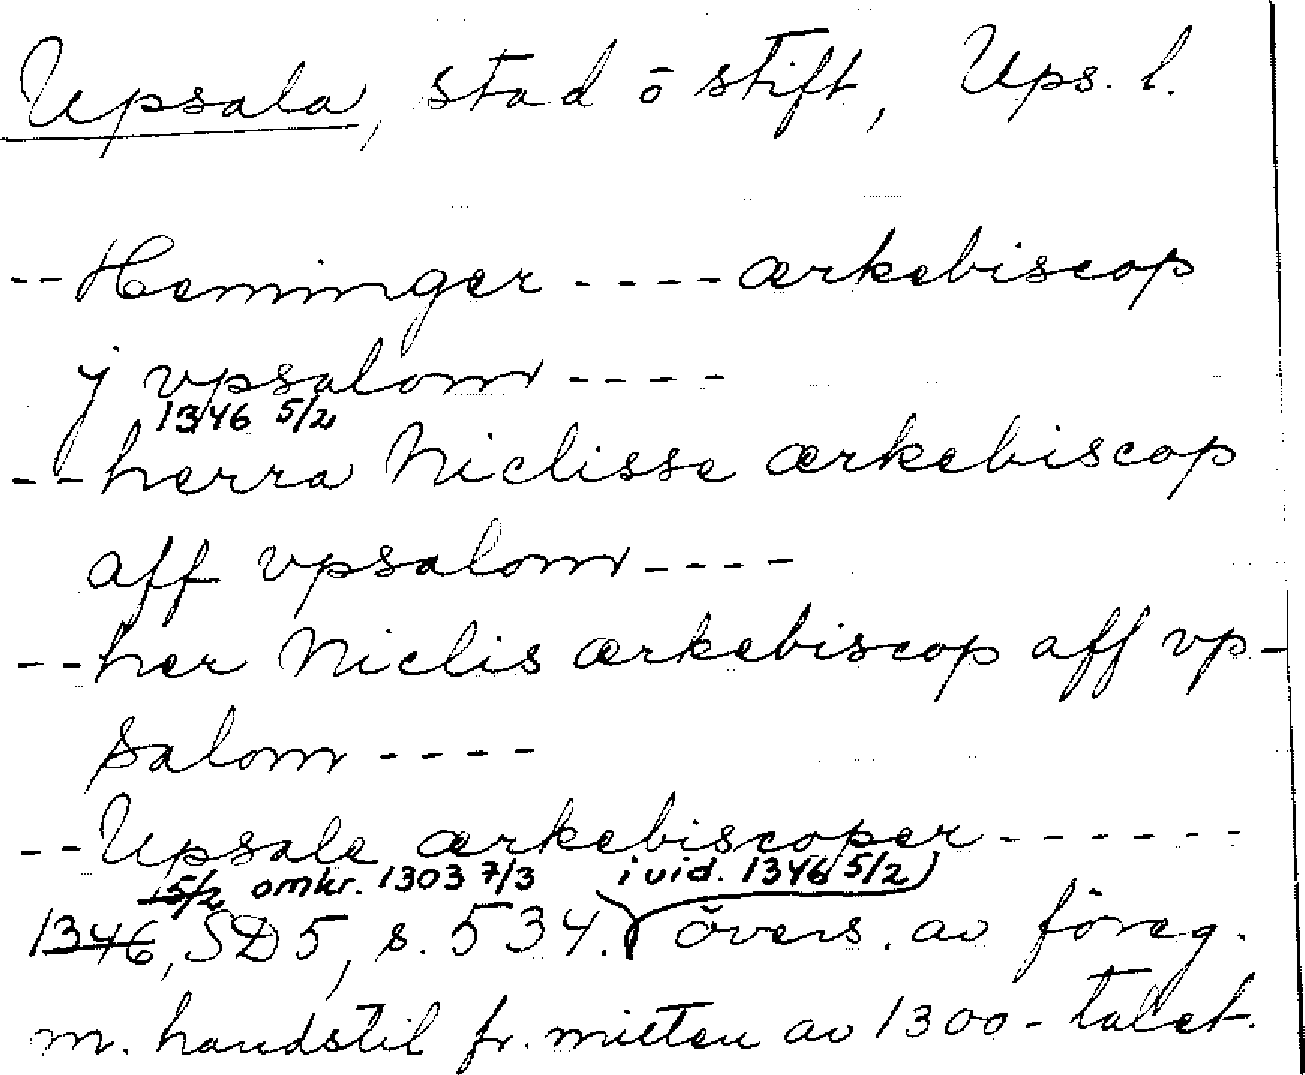 Upsala, stad o stift, Ups. l.
-- Heminger ---- ærkebiscop
j vpsalom ----
1346 5/2
-- herra Niclisse ærkebiscop
aff vpsalom ----
-- her Niclis ærkebiscop aff vp-
salom ----
-- Upsale ærkebiscoper ------
5/2 omkr. 1303 7/3 i vid. 1346 5/2)
1346, SD 5, s. 534. övers. av föreg.
m. handstil fr. mitten av 1300-talet.